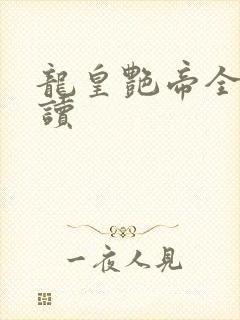 龍皇艷帝全
讀
一夜人見